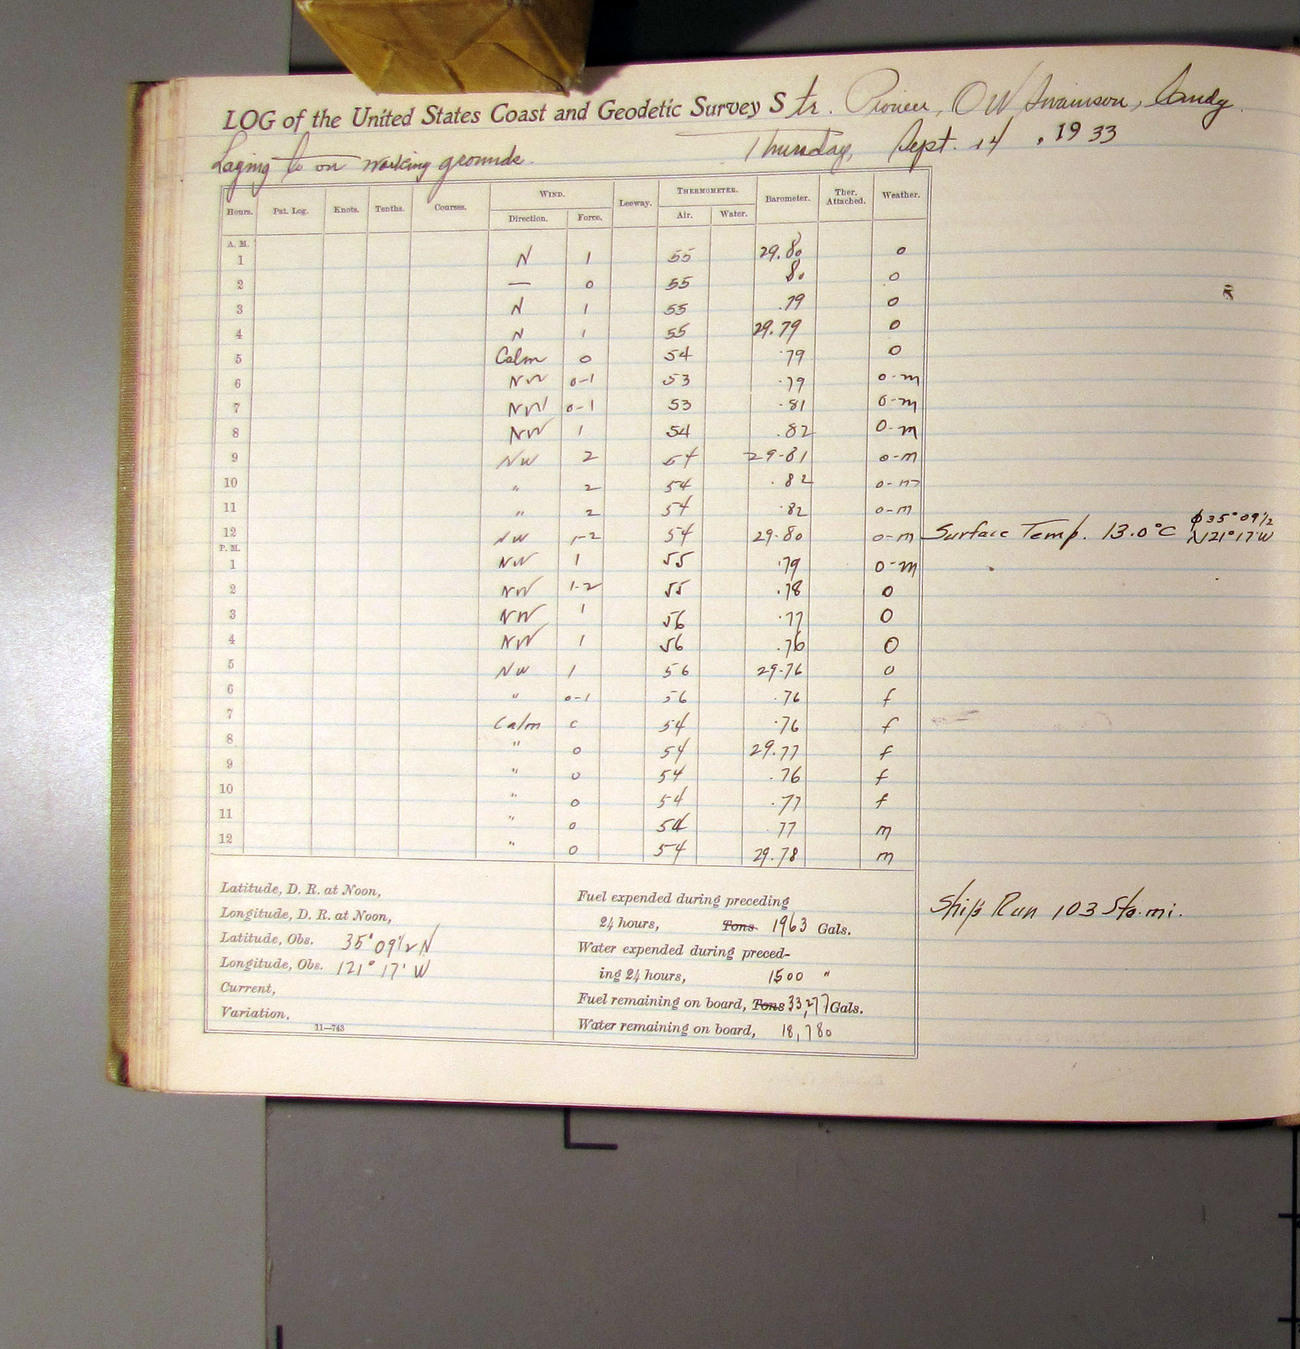 LOG of the United States Coast and Geodetic Survey Str. Pioneer, OW Swainson, Comdg.
Laying to on working grounds. Thursday, Sept. 14, 1933
Hours. Pat. Log. Knots. Tenths. Courses. WIND. Direction. Force. Leeway. THERMOMETER. Air. Water. Barometer. Ther. Attached. Weather.
A. M.
1 N 1 55 29.80 o
2 — 0 55 80 o
3 N 1 55 .79 o
4 N 1 55 29.79 o
5 Calm 0 54 .79 o
6 NW 0-1 53 .79 o-m
7 NW 0-1 53 .81 o-m
8 NW 1 54 .82 o-m
9 NW 2 54 29.81 o-m
10 " 2 54 .82 o-m
11 " 2 54 .82 o-m
12 NW 1-2 54 29.80 o-m Surface Temp. 13.0°C ϕ 35°09½ λ 121°17'W
P. M.
1 NW 1 55 .79 o-m
2 NW 1-2 55 .78 o
3 NW 1 56 .77 o
4 NW 1 56 .76 o
5 NW 1 56 29.76 o
6 " 0-1 56 .76 f
7 Calm 0 54 .76 f
8 " 0 54 29.77 f
9 " 0 54 .76 f
10 " 0 54 .77 f
11 " 0 54 77 m
12 " 0 54 29.78 m
Latitude, D. R. at Noon,
Longitude, D. R. at Noon,
Latitude, Obs. 35°09½ N
Longitude, Obs. 121° 17' W
Current,
Variation,
11—743
Fuel expended during preceding
24 hours, Tons 1963 Gals.
Water expended during preced-
ing 24 hours, 1500 "
Fuel remaining on board, Tons 33,277 Gals.
Water remaining on board, 18,780
Ship's Run 103 Sta. mi.